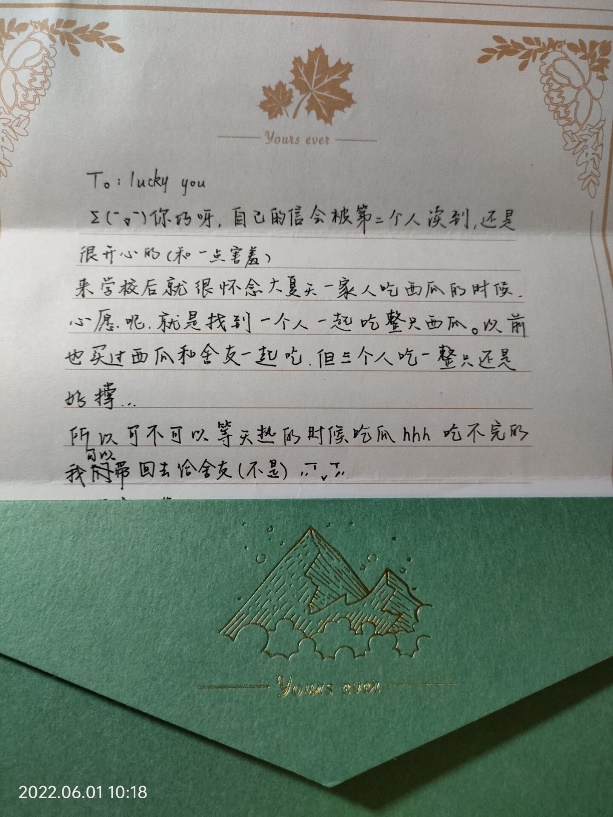 Yours ever
To: lucky you
Σ(ˉoˉ)你好呀,自己的信会被第二个人读到,还是
很开心的(和一点害羞)
来学校后就很怀念大夏天一家人吃西瓜的时候.
心愿呢.就是找到一个人一起吃整只西瓜。以前
也买过西瓜和舍友一起吃.但三个人吃一整只还是
好撑...
所以可不可以等天热的时候吃瓜hhh 吃不完的
我可以带回去给舍友(不是)
Yours ever
2022.06.01 10:18